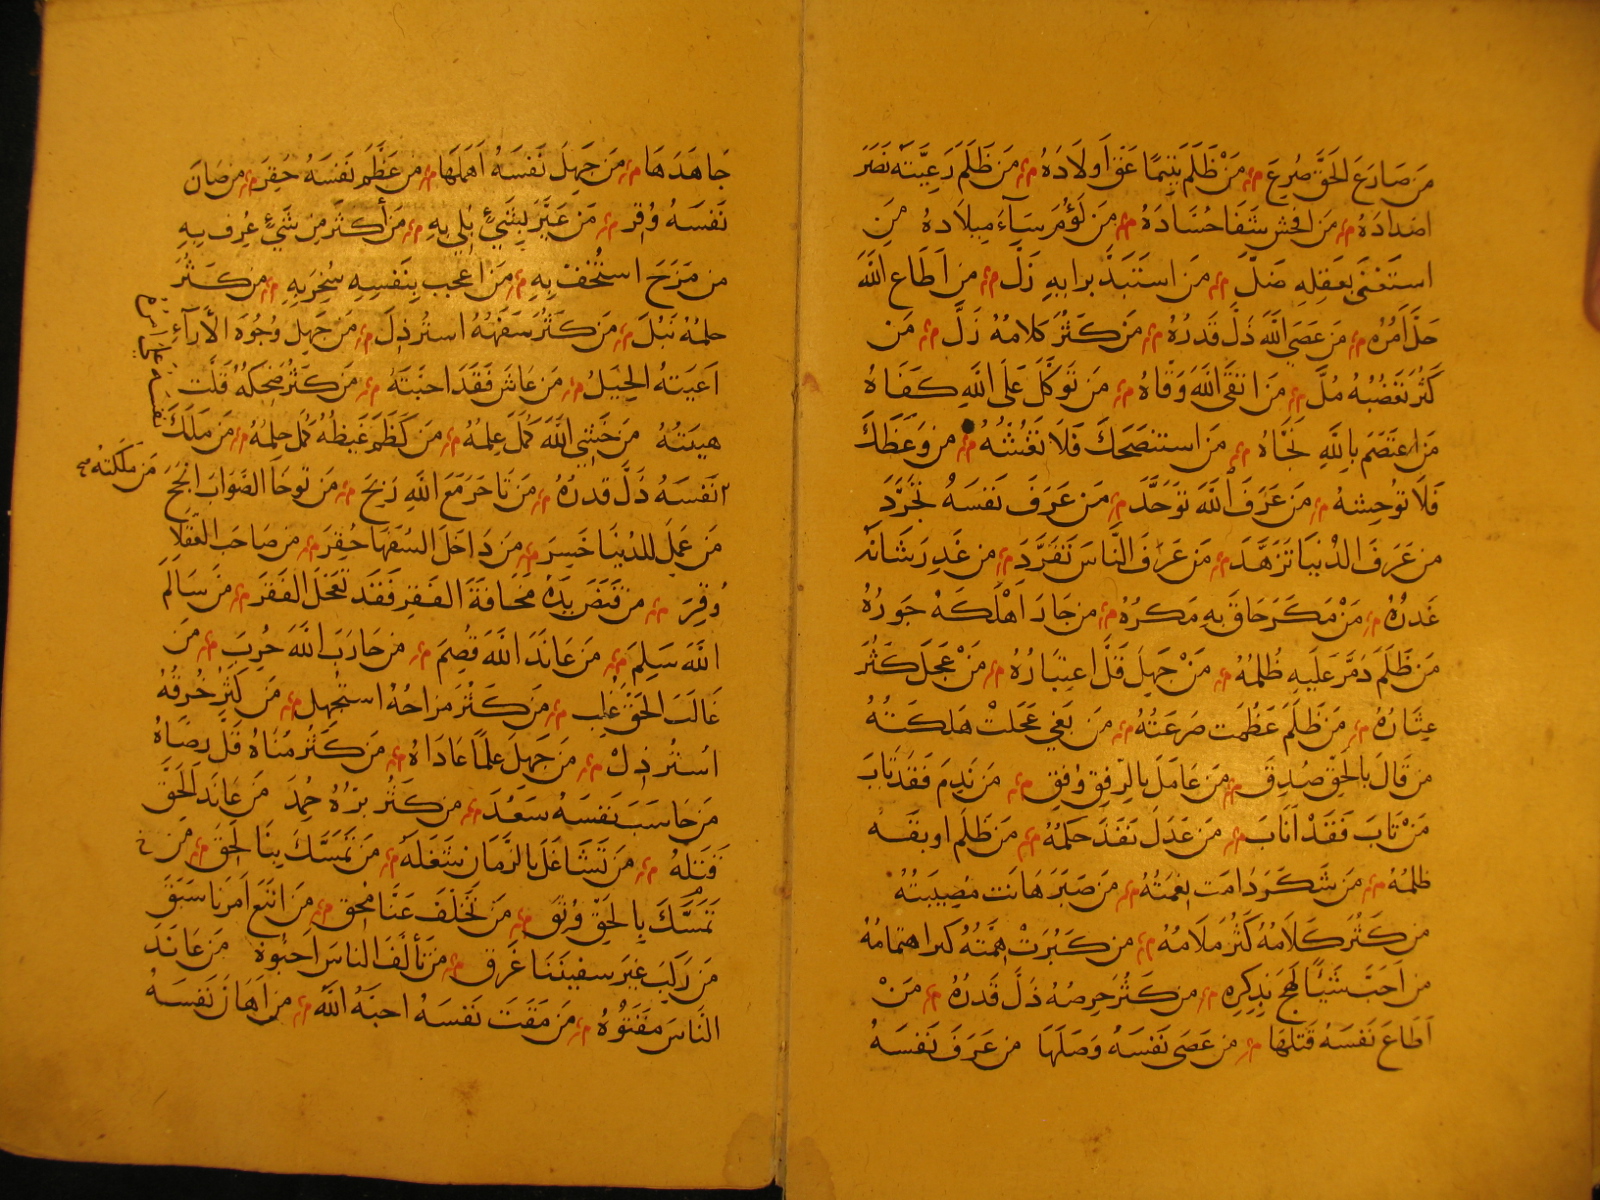 مَن صَارَعَ الحَقَّ صُرِعَ مَنْ ظَلَمَ يَتِيمًا عَقَّ أَولَادَهُ مَن ظَلَمَ رَعِيَّتَهُ نَصَرَ
اضدَادَهُ مَن افحش شَفَا حُسَّادَهُ مَن لَؤُمَ سَآءَ مِيلَادهُ مَنِ
استَغنَى بعَقلِهِ ضَلَّ مَن استَبَدَّ برايِهِ زَلَّ من اَطَاعَ اللَّهَ
جَلَّ اَمرُه مَن عَصَى اللَّهَ ذَلَّ قَدرُهُ مَن كَثُرَ كلامُهُ زَلَّ مَن
كَثُرَ تَعَصُّبُهُ مُلَّ مَنِ اتقَى اللَّهَ وَقَاهُ مَن تَوَكَّلَ عَلَى اللَّهِ كَفَاهُ
مَن اعتَصَمَ بِاللَّهِ نَجَّاهُ مَن استنصَحَكَ فَلَا تَغُشَّهُ من وَعَظَكَ
فَلَا تُوحِشهُ مَن عَرَفَ اللَّهَ تَوَحَّدَ مَن عَرَفَ نَفسَهُ تَجَرَّدَ
من عَرَفَ الدُّنيَا تَزَهَّدَ مَن عَرَفَ النَّاسَ تَفَرَّدَ من غَدرَ شَانَهُ
غَدرُهُ مَنْ مَكَرَ حَاقَ بِهِ مَكرُهُ من جَارَ اَهْلَكَهُ جَورُهُ
مَن ظَلَمَ دَمَّرَ عَلَيهِ ظُلمُهُ مَنْ جَهِلَ قَلَّ اعتِبَارُهُ مَنْ عَجِلَ كَثُرَ
عِثَارُهُ مَن ظَلَمَ عَظُمَت صَرعَتُهُ مَن بَغي عَجَلتْ هَلكَتُهُ
من قَالَ بِالحَقِّ صُدِّقَ مَن عَامَلَ بِالرِّفقِ وُفِّقَ مَن نَدِمَ فَقَد تَابَ
مَنْ تَابَ فَقَدْ اَنَابَ مَن عَدَلَ نَفَذَ حُكمُهُ مَن ظَلَم اوبقَه
ظلمُهُ مَن شَكَرَ دَامَت نِعمَتُهُ مَن صَبَرَ هَانَت مُصِيبَتُهُ
من كَثُرَ كَلَامُهُ كَثُرَ مَلَامُهُ من كَبُرَتْ هِمَّتُهُ كبر اهتمامُهُ
من اَحَبَّ شَيًا لَهِجَ بِذِكرِهِ من كَثُرَ حِرصُهُ ذَلَّ قَدرُهُ مَنْ
اَطَاعَ نَفسَهُ قَتَلَهَا من عَصَى نَفسَهُ وَصَلَهَا مَن عَرَفَ نَفسَهُ
جَاهَدَهَا مَن جَهِلَ نَفسَهُ اَهمَلَهَا مَن عَظَّمَ نَفسَهُ حُقِرَ من صَانَ
نَفسَهُ وُقِّرَ مَن عَيَّرَ بِشَيءٍ بُلِيَ بِهِ مَن أَكثَرَ مِن شَيءٍ عُرِفَ بِهِ
من مَزَحَ استُخِفَّ بِهِ مَن اعجِبَ بِنَفسِهِ سُخِرَ بِهِ من كَثُرَ
حلمُهُ نَبُلَ مَن كَثُرَ سَفَهُهُ استُرذِلَ مَن جَهِلَ وُجُوهَ الآرَآءِ
اَعيَتهُ الحِيَلُ مَن عَاشَ فَقَدَ احبَّتَهُ مَن كَثُرَ ضِحكُهُ قَلَّت
هيبَتُهُ مَن خَشِيَ اللَّهَ كَمُلَ عِلمُهُ مَن كَظَمَ غَيظَهُ كَمُلَ حِلمُهُ مَن مَلَكَ
نفسه علي امره
مَن مَلَكَتهُ صح
نَفسَهُ ذَلَّ قَدرُهُ مَن تَاجَرَ مَعَ اللَّهِ رَبِحَ مَن تَوخَا الصَّوَابَ انجَحَ
مَن عَمِلَ للدُنيَا خَسِرَ مَن دَاخَلَ السُفَهَا حُقِرَ مَن صَاحَبَ العُقَلَا
وُقِّرَ من قَبَضَ يَدَهُ مَخَافَةَ الفَقرِ فَقَد تعَجَّلَ الفَقرَ مَن سَالَمَ
اللَّهَ سَلِمَ مَن عَانَدَ اللَّهَ قُصِمَ من حَارَبَ اللَّهَ حُرِبَ مَن
غَالَبَ الحَقَّ غُلِبَ مَن كَثُرَ مزاحُهُ استُجهِلَ مَن كَثُرَ خُرقُهُ
اُستُرذِلَ مَن جَهِلَ عِلمًا عَادَاهُ مَن كَثُرَ مُنَاهُ قَلَّ رِضَاهُ
مَن حَاسَبَ نَفسَهُ سَعُدَ من كَثُرَ برُّهُ حُمِدَ مَن عَانَدَ الحَقَّ
قَتَلَهُ مَن تَشَاغَلَ بالزَّمَان شَغَلَهُ مَن تَمَسَّكَ بِنَا لَحِقَ مَن
تَمَسَّكَ بِالحَقِّ وُثِقَ مَن تَخَلَّفَ عَنَّا مُحِقَ مَن اتَّبَعَ اَمرَنَا سَبَقَ
مَن رَكِبَ غَيرَ سفينَتَنَا غَرِقَ مَن تَأَلَّفَ النَاسَ اَحَبُّوهُ مَن عَانَدَ
النَّاسَ مَقَتُوهُ مَن مَقَتَ نَفسَهُ احَبَّهُ اللَّهُ من اَهَانَ نَفسَهُ